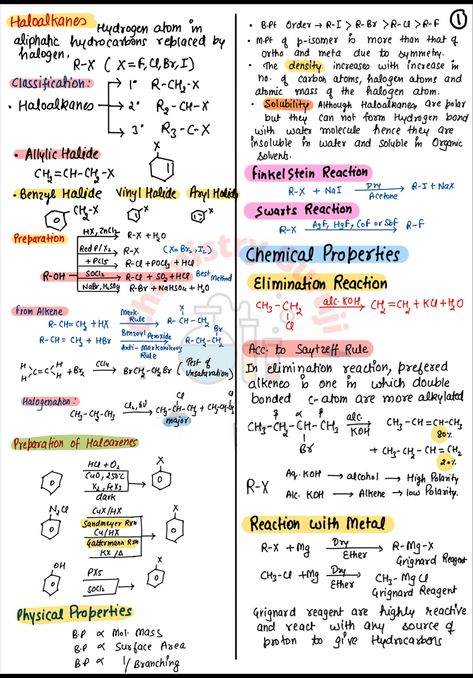 Haloalkanes Hydrogen atom in
aliphatic hydrocarbons replaced by
halogen.
R-X ( X=F, Cl, Br, I )
Classification:
1° R-CH₂-X
• Haloalkanes 2° R₂-CH-X
3° R₃-C-X
• Allylic Halide
CH₂=CH-CH₂-X
X
• Benzyl Halide Vinyl Halide Aryl Halide
CH₂-X
X
X
Preparation
R-OH
HX, ZnCl₂ R-X + H₂O
Red P/X₂ R-X (X=Br₂, I₂)
+ PCl₅ R-Cl + POCl₃ + HCl
SOCl₂ R-Cl + SO₂ + HCl Best Method
NaBr, H₂SO₄ R-Br + NaHSO₄ + H₂O
From Alkene
R-CH=CH₂ + HX Mark. Rule R-CH-CH₃
X
R-CH=CH₂ + HBr Benzoyl Peroxide R-CH₂-CH₂
Br
Anti-Markonikov Rule
H H
C=C + Br₂ CCl₄ BrCH₂-CH₂Br ( Test of Unsaturation )
H H
Halogenation:
CH₃-CH₂-CH₃ Cl₂, UV CH₃-CH-CH₃ + CH₃CH₂CH₂
Cl
major
Preparation of Haloarenes
HCl + O₂
CuO, 250°C
X₂, FeX₃
dark
X
N₂Cl
CuX/HX
Sandmeyer Rxn
Cu/HX
Gattermann Rxn
KX/Δ
X
OH
PX₅
SOCl₂
X
Physical Properties
B.P ∝ Mol. Mass
B.P ∝ Surface Area
B.P ∝ 1/Branching
1
• B.Pt Order → R-I > R-Br > R-Cl > R-F
• M.Pt of p-isomer is more than that of
ortho and meta due to symmetry.
• The density increases with increase in
no. of carbon atoms, halogen atoms and
atomic mass of the halogen atom.
• Solubility Although Haloalkanes are polar
but they can not form Hydrogen bond
with water molecule hence they are
insoluble in water and soluble in Organic
Solvents.
Finkelstein Reaction
R-X + NaI Dry Acetone R-I + NaX
Swarts Reaction
R-X AgF, HgF, CoF or SbF R-F
Chemical Properties
Elimination Reaction
CH₃-CH₂ alc. KOH CH₂=CH₂ + KCl + H₂O
Cl
Acc. to Saytzeff Rule
In elimination reaction, preferred
alkenes is one in which double
bonded c-atom are more alkylated
β α β
CH₃-CH₂-CH-CH₃ alc. KOH CH₃-CH=CH-CH₃
Br 80%
+ CH₃-CH₂-CH=CH₂
20%
R-X
Aq. KOH → alcohol → High Polarity
Alc. KOH → Alkene → low Polarity.
Reaction with Metal
R-X + Mg Dry Ether R-Mg-X
Grignard Reagent
CH₃-Cl + Mg Dry Ether CH₃-MgCl
Grignard Reagent
Grignard reagent are highly reactive
and react with any source of
proton to give Hydrocarbons